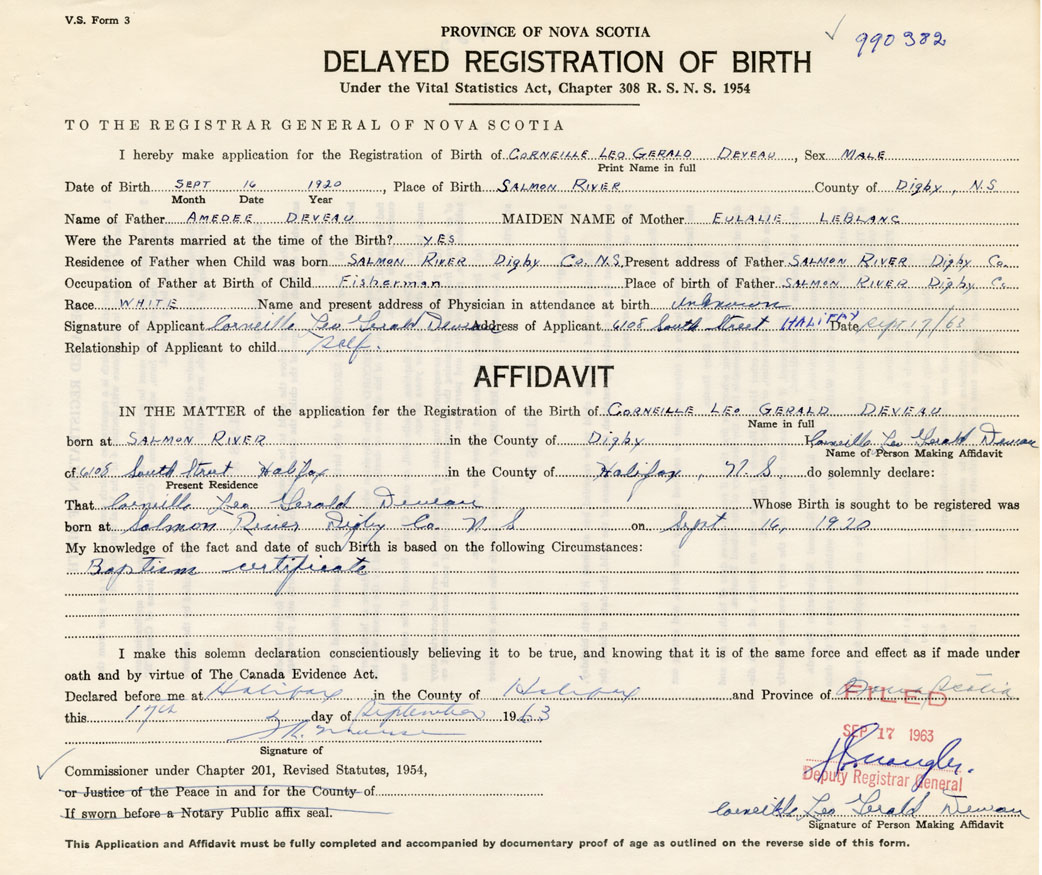 V.S. Form 3
990382
PROVINCE OF NOVA SCOTIA
DELAYED REGISTRATION OF BIRTH
Under the Vital Statistics Act, Chapter 308 R. S. N. S. 1954
TO THE REGISTRAR GENERAL OF NOVA SCOTIA
I hereby make application for the Registration of Birth of CORNEILLE LEO GERALD DEVEAU, Sex MALE
Print Name in full
Date of Birth SEPT 16 1920, Place of Birth SALMON RIVER County of Digby, N.S
Month Date Year
Name of Father AMEDEE DEVEAU MAIDEN NAME of Mother EULALIE LEBLANC
Were the Parents married at the time of the Birth? YES
Residence of Father when Child was born SALMON RIVER Digby Co. N.S. Present address of Father SALMON RIVER Digby Co.
Occupation of Father at Birth of Child Fisherman Place of birth of Father SALMON RIVER Digby C.
Race WHITE Name and present address of Physician in attendance at birth unknown
Signature of Applicant Corneille Leo Gerald Deveau Address of Applicant 6108 South Street HALIFAX Date Sept 17/63
Relationship of Applicant to child Self.
AFFIDAVIT
IN THE MATTER of the application for the Registration of the Birth of CORNEILLE LEO GERALD DEVEAU
Name in full
born at SALMON RIVER in the County of Digby I, Corneille Leo Gerald Deveau
Name of Person Making Affidavit
of 6108 South Street Halifax in the County of Halifax, N.S. do solemnly declare:
Present Residence
That Corneille Leo Gerald Deveau Whose Birth is sought to be registered was
born at Salmon River Digby Co N S on Sept 16, 1920
My knowledge of the fact and date of such Birth is based on the following Circumstances:
Baptism certificate
I make this solemn declaration conscientiously believing it to be true, and knowing that it is of the same force and effect as if made under
oath and by virtue of The Canada Evidence Act.
Declared before me at Halifax in the County of Halifax and Province of Nova Scotia
FILED
this 17th day of September 1963
SEP 17 1963
Signature of
Commissioner under Chapter 201, Revised Statutes, 1954,
Deputy Registrar General
or Justice of the Peace in and for the County of
If sworn before a Notary Public affix seal.
Corneille Leo Gerald Deveau
Signature of Person Making Affidavit
This Application and Affidavit must be fully completed and accompanied by documentary proof of age as outlined on the reverse side of this form.